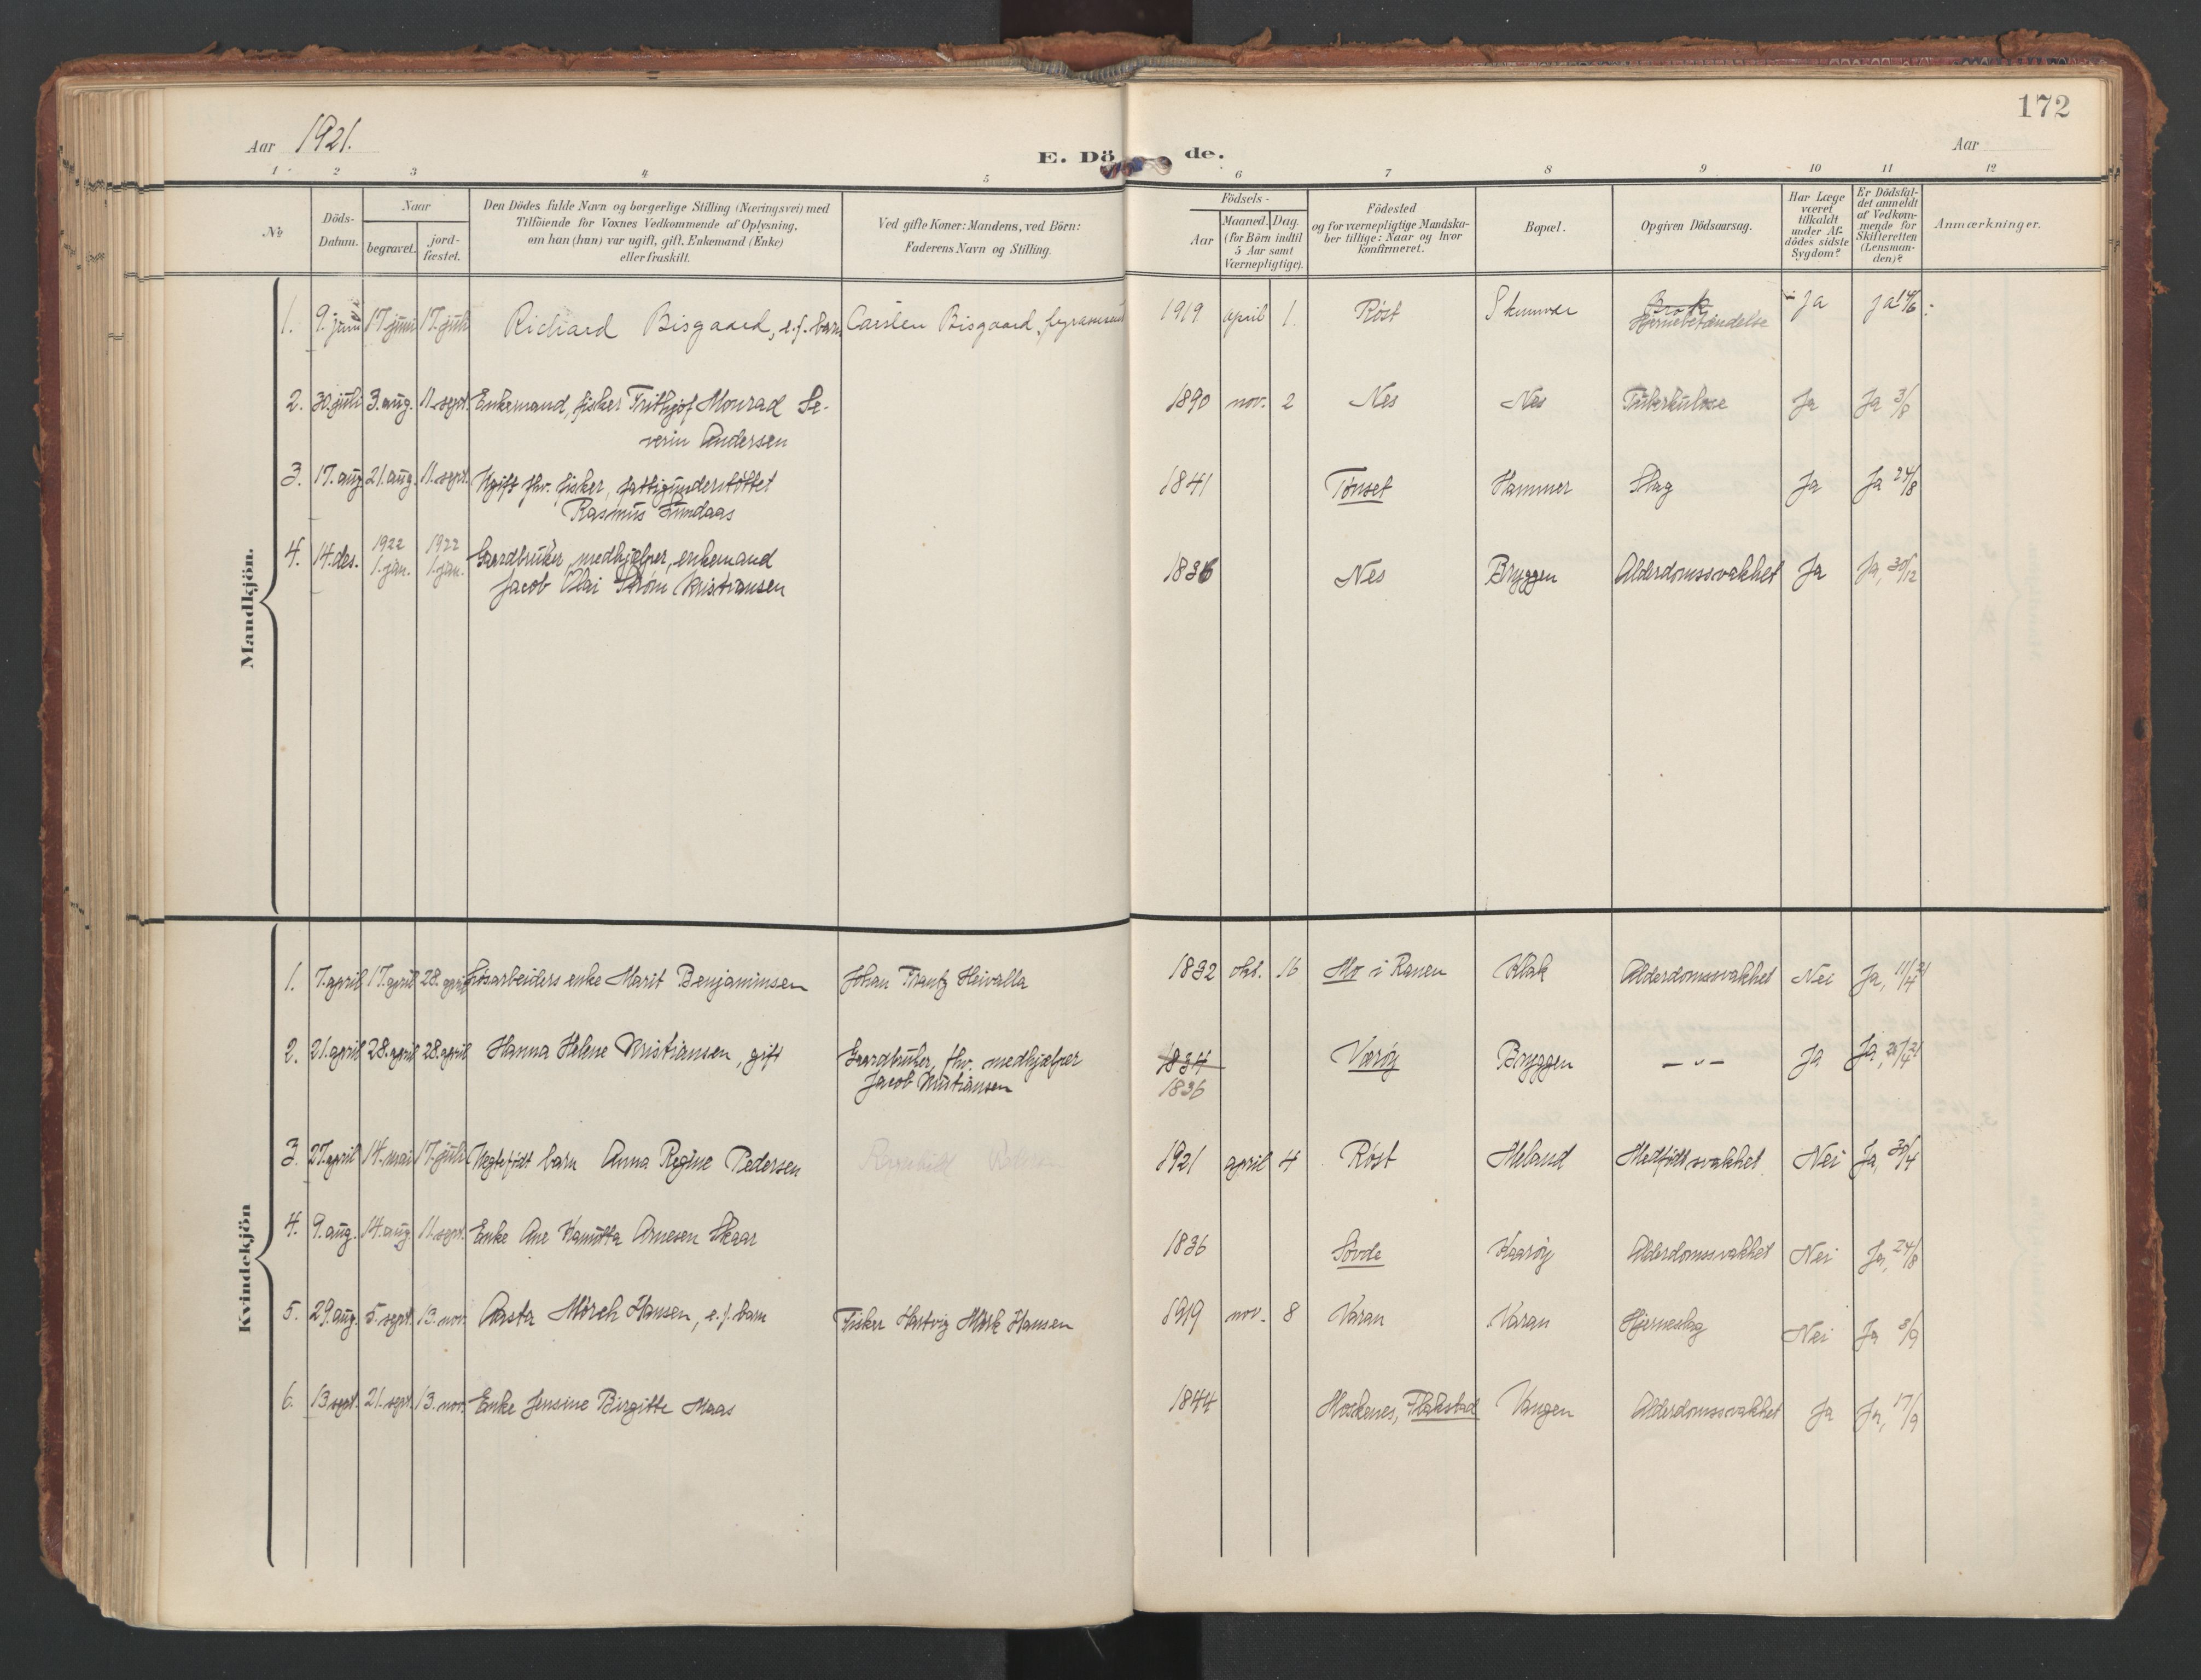 172
Aar 1921.
E. Dö de.
Aar
1 2 3 4 5 6 7 8 9 10 11 12
No
Döds-Datum.
Naar
begravet.
jord-fæstet.
Den Dödes fulde Navn og borgerlige Stilling (Næringsvei) med
Tilföiende for Voxnes Vedkommende af Oplysning,
om han (hun) var ugift, gift, Enkemand (Enke)
eller fraskilt.
Ved gifte Koner: Mandens, ved Börn:
Faderens Navn og Stilling.
Födsels-
Aar
Maaned. Dag.
(for Börn indtil
5 Aar samt
Værnepligtige).
Födested
og for værnepligtige Mandska-
ber tillige: Naar og hvor
konfirmeret.
Bopæl.
Opgiven Dödsaarsag.
Har Læge
været
tilkaldt
under Af-
dödes sidste
Sygdom?
Er Dödsfal-
det anmeldt
af Vedkom-
mende for
Skifteretten
(Lensman-
den)?
Anmærkninger.
Mandkjön.
1. 9. juni 17. juni 17. juli Richard Bisgaard, e.f. barn Carsten Bisgaard, 1919 april 1. Røst Skumvær Hjernebetændelse Ja Ja
2. 30. juli 3. aug. 11. sept. Enkemand, fisker Frithjof Monrad Se-
verin Andersen 1890 nov. 2 Nes Nes Tuberkulose Ja Ja 3/8
3. 17. aug. 21. aug. 11. sept. Ugift fhv. fisker, fattigunderstøttet
Rasmus 1841 Tønset Hammer Slag Ja Ja 24/8
4. 14. des. 1922 1. jan. 1922 1. jan. Gaardbruker, medhjælper, enkemand
Jacob Olai Strøm Kristiansen 1836 Nes Bryggen Alderdomssvakhet Ja Ja, 30/12
Kvindekjön
1. 7. april 17. april 28. april Løsarbeiders enke Marit Benjaminsen Johan Frantz Heivalla 1832 okt. 16 Mo i Ranen Klak Alderdomssvakhet Nei Ja, 11/4 21
2. 21. april 28. april 28. april Hanna Helene Kristiansen, gift Gaardbruker, fhv. medhjælper
Jacob Kristiansen 1834
1836 Værøy Bryggen — „ — Ja Ja, 26/4 21
3. 27. april 14. mai 17. juli Uegtefødt barn Anna Regine Pedersen 1921 april 4 Røst Meland Medfødt svakhet Nei Ja, 30/4
4. 9. aug. 14. aug. 11. sept. Enke Ane Kanutta Arnesen Skaar 1836 Søvde Kaarøy Alderdomssvakhet Nei Ja, 24/8
5. 29. aug. 5. sept. 13. nov. Aasta Mörch Hansen, e.f. barn Fisker Hartvig Mörk Hansen 1919 nov. 8 Varan Varan Hjerneslag Nei Ja 8/9
6. 13 sept. 21. sept. 13. nov. Enke Jensine Birgitte Maas 1844 Moskenes, Flakstad Vangen Alderdomssvakhet Ja Ja, 17/9